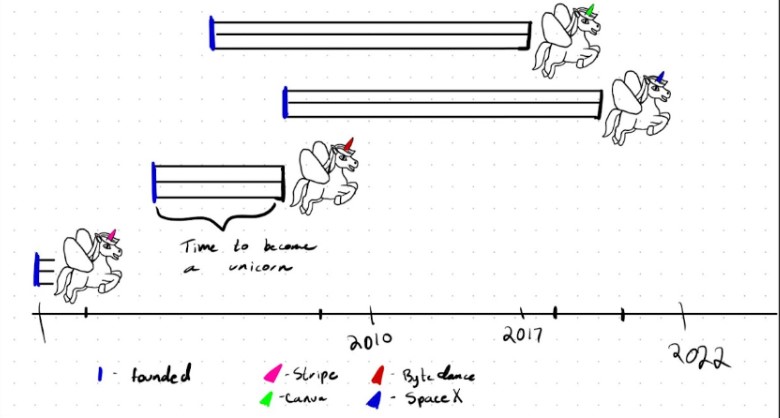 Time to become
a unicorn
2010
2017
2022
- founded
- Stripe
- Bytedance
- Canva
- SpaceX